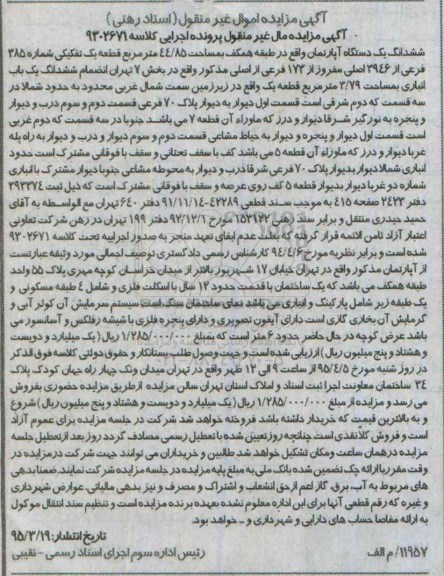 آگهی مزایده اموال غیر منقول (اسناد رهنی)
آگهی مزایده مال غیر منقول پرونده اجرایی کلاسه ۹۳۰۲۶۷۱
ششدانگ یک دستگاه آپارتمان واقع در طبقه همکف بمساحت ۴۴/۸۵ متر مربع قطعه یک تفکیکی شماره ۳۸۵
فرعی از ۳۹۴۶ اصلی مفروز از ۱۷۳ فرعی از اصلی مذکور واقع در بخش ۷ تهران انضمام ششدانگ یک باب
انباری بمساحت ۳/۷۹ متر مربع قطعه یک واقع در زیرزمین سمت شمال غربی محدود به حدود شمالا در
سه قسمت که دوم شرقی است قسمت اول دیوار به دیوار پلاک ۷۰ فرعی قسمت دوم و سوم درب و دیوار
و پنجره به نورگیر شرقا دیوار و درز که ماوراء آن قطعه ۷ می باشد جنوبا در سه قسمت که دوم غربی
است قسمت اول دیوار و پنجره و دیوار به حیاط مشاعی قسمت دوم و سوم دیوار و درب و دیوار به راه پله
غربا دیوار و درز که ماوراء آن قطعه ۵ می باشد کف با سقف تحتانی و سقف با فوقانی مشترک است حدود
انباری شمالا دیوار بدیوار پلاک ۷۰ فرعی شرقا درب و دیوار به محوطه مشاعی جنوبا دیوار مشترک با انباری
شماره دو غربا دیوار بدیوار قطعه ۵ کف روی عرصه و سقف با فوقانی مشترک است که ذیل ثبت ۳۹۳۳۷۴
دفتر ۲۴۲۳ صفحه ۴۱۵ به موجب سند قطعی ۴۲۲۸۹-۹۱/۱۱/۱۴ دفتر ۶۴۰ تهران مع الواسطه به آقای
حمید حیدری منتقل و برابر سند رهنی ۱۵۳۱۳۲ مورخ ۹۲/۱۲/۱ دفتر ۱۹۹ تهران در رهن شرکت تعاونی
اعتبار آزاد ثامن الائمه قرار گرفته که بعلت عدم ایفای تعهد منجر به صدور اجراییه تحت کلاسه ۹۳۰۲۶۷۱
شده است و برابر نظریه مورخ ۹۴/۴/۶ کارشناس رسمی دادگستری توصیف اجمالی مورد وثیقه عبارتست
از آپارتمان مذکور واقع در تهران خیابان ۱۷ شهریور بالاتر از میدان خراسان کوچه مهری پلاک ۵۵ واحد
طبقه همکف می باشد که یک ساختمان با قدمت حدود ۱۲ سال با اسکلت فلزی و شامل ۴ طبقه مسکونی و
یک طبقه زیر شامل پارکینگ و انباری می باشد نمای ساختمان سنگ است سیستم سرمایش آن کولر آبی و
گرمایش آن بخاری گازی است دارای آیفون تصویری و دارای پنجره فلزی با شیشه رفلکس و آسانسور می
باشد عرض کوچه در حال حاضر حدود ۶ متر است که بمبلغ ۱/۲۸۵/۰۰۰/۰۰۰ ریال (یک میلیارد و دویست
و هشتاد و پنج میلیون ریال) ارزیابی شده است و جهت وصول طلب بستانکار و حقوق دولتی کلاسه فوق الذکر
در روز شنبه مورخ ۹۵/۴/۵ از ساعت ۹ الی ۱۲ ظهر واقع در تهران میدان ونک چهار راه جهان کودک پلاک
۳۴ ساختمان معاونت اجرا ثبت اسناد و املاک استان تهران سالن مزایده از طریق مزایده حضوری بفروش
می رسد و مزایده از مبلغ ۱/۲۸۵/۰۰۰/۰۰۰ ریال (یک میلیارد و دویست و هشتاد و پنج میلیون ریال) شروع و
و به بالاترین قیمت که خریدار داشته باشد فروخته خواهد شد شرکت در جلسه مزایده برای عموم آزاد
است و فروش کلا نقدی است چنانچه روز تعیین شده با تعطیل رسمی مصادف گردد روز بعد از تعطیل جلسه
مزایده در همان ساعت و مکان تشکیل خواهد شد طالبین و خریداران می توانند جهت شرکت در مزایده در
وقت مقرر با ارائه چک تضمین شده بانک ملی به مبلغ پایه مزایده در جلسه مزایده شرکت نمایند ضمنا بدهی
های مربوط به آب، برق گاز اعم از حق انشعاب و اشتراک و مصرف و نیز بدهی مالیاتی عوارض شهرداری
و غیره که رقم قطعی آنها برای این اداره معلوم نشده بعهده برنده مزایده است و تنظیم سند انتقال موکول
به ارائه مفاصا حساب های دارایی و شهرداری و ... خواهد بود.
تاریخ انتشار: ۹۵/۳/۱۹
۱۱۹۵۷/م الف
رئیس اداره سوم اجرای اسناد رسمی - نقیبی